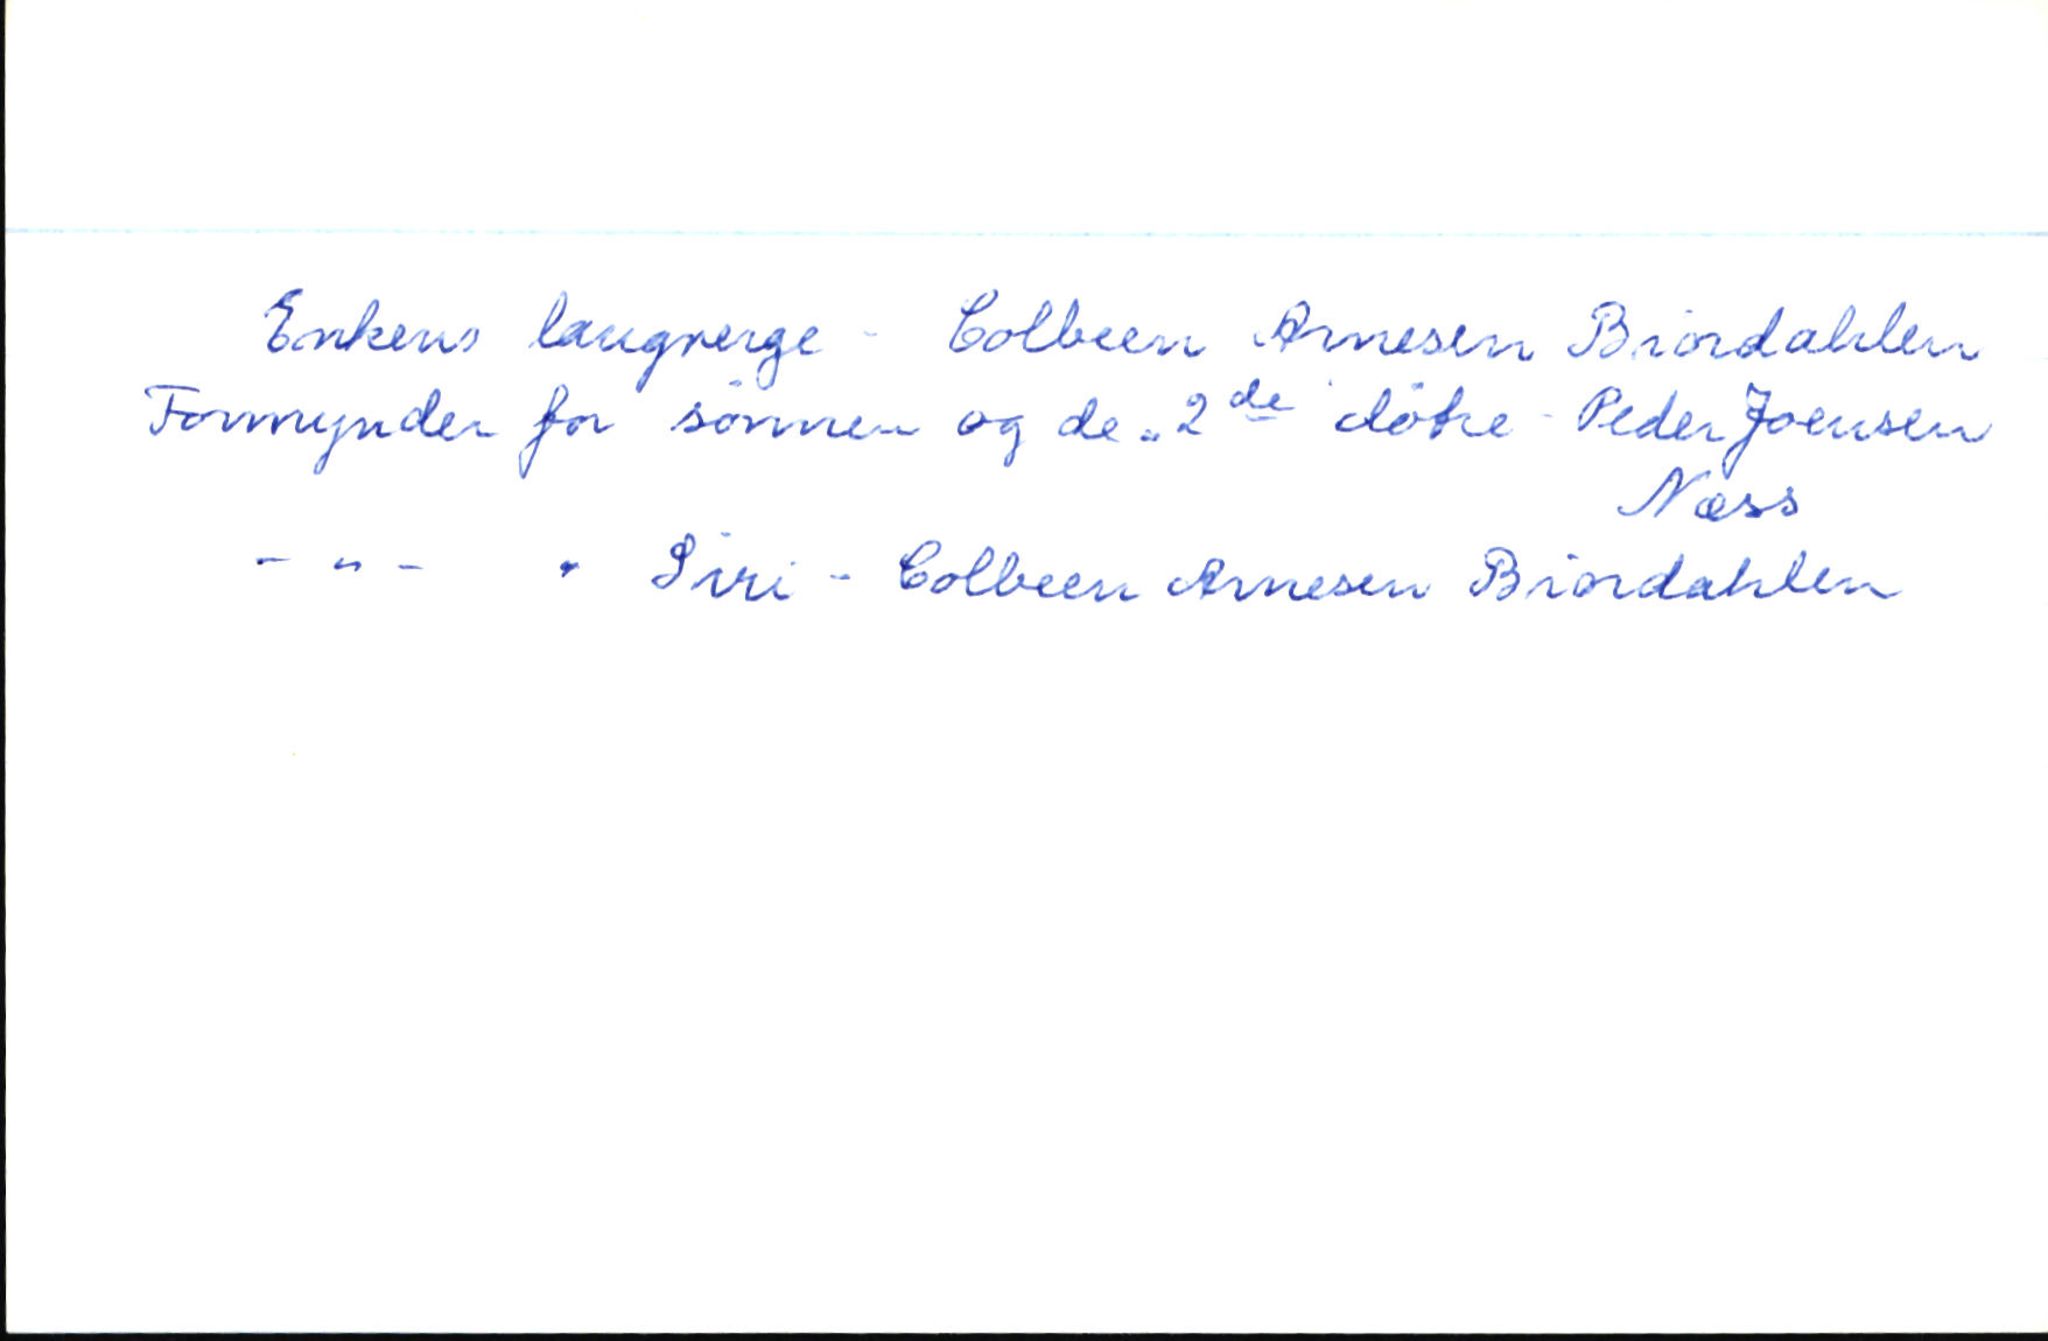 Enkens laugverge - Colbeen Arnesen Biördahlen
Formynder for sönnen og de „2de dötre - Peder Joensen
Næss
- „ - " Siri - Colbeen Arnesen Biördahlen